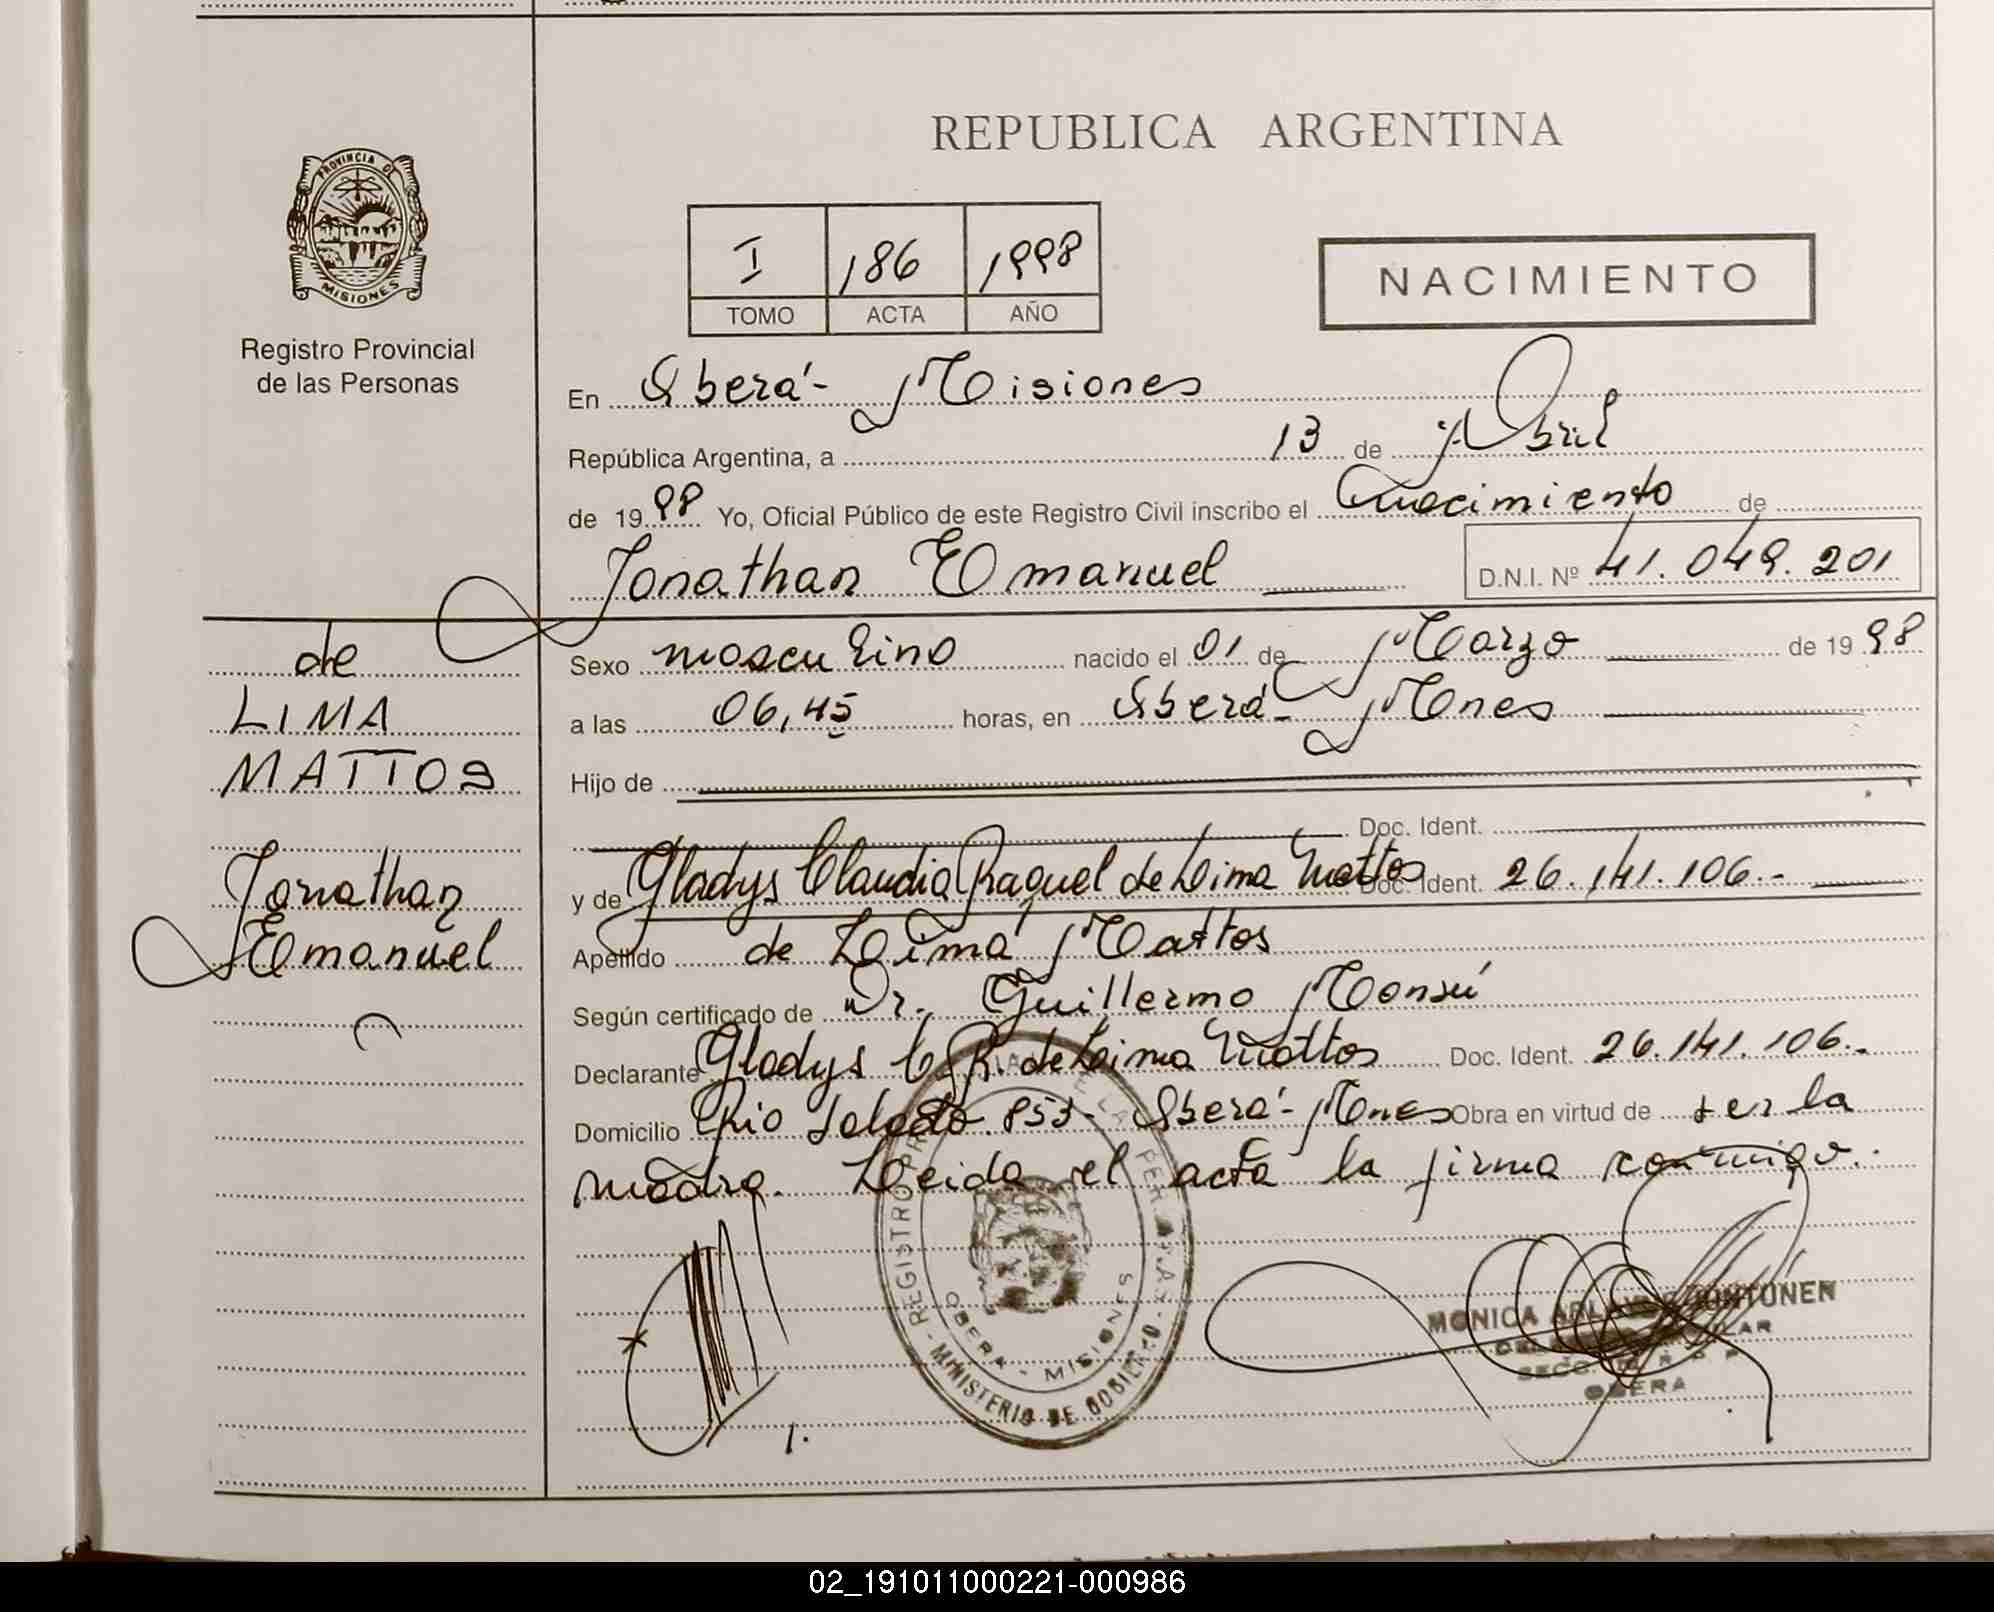 REPUBLICA ARGENTINA
PROVINCIA DE
MISIONES
Registro Provincial
de las Personas
I 186 1998
TOMO ACTA AÑO
NACIMIENTO
En Oberá - Misiones
República Argentina, a 13 de Abril
de 1998 Yo, Oficial Público de este Registro Civil inscribo el nacimiento de
Jonathan Emanuel D.N.I. Nº 41.049.201
de
LIMA
MATTOS
Jonathan
Emanuel
Sexo masculino nacido el 01 de Marzo de 1998
a las 06,45 horas, en Oberá - Mnes
Hijo de
Doc. Ident.
y de Gladys Claudia Raquel de Lima Mattos Doc. Ident. 26.141.106.-
Apellido de Lima Mattos
Según certificado de Dr. Guillermo Monsú
Declarante Gladys C. R. de Lima Mattos Doc. Ident. 26.141.106.-
Domicilio Río Salado 853 - Oberá - Mnes Obra en virtud de ser la
madre. Leida el acta la firma conmigo.
REGISTRO LA PER
OBERA - MISIONES
MINISTERIO DE GOBIERNO
MONICA
OBERA
02_191011000221-000986